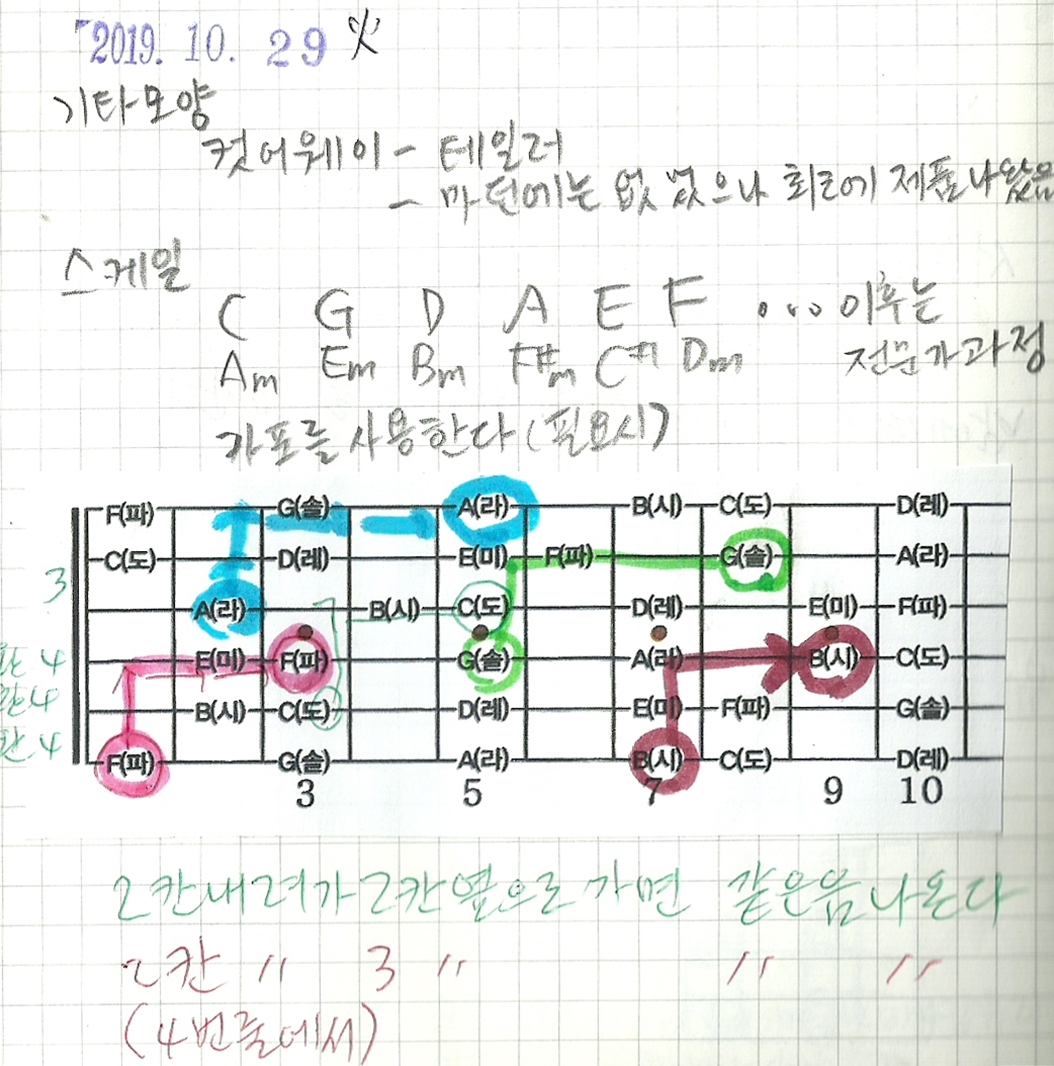 2019. 10. 29 火
기타모양
컷어웨이 - 테일러
- 마틴에는 없었으나 최근에 제품나왔음
스케일
C G D A E F ... 이후는
Am Em Bm F#m C#m Dm 전문가과정
카포를 사용한다 (필요시)
F(파) G(솔) A(라) B(시) C(도) D(레)
C(도) D(레) E(미) F(파) G(솔) A(라)
3 A(라) B(시) C(도) D(레) E(미) F(파)
4 E(미) F(파) G(솔) A(라) B(시) C(도)
4 B(시) C(도) D(레) E(미) F(파) G(솔)
4 F(파) G(솔) A(라) B(시) C(도) D(레)
3 5 7 9 10
2칸내려가 2칸옆으로 가면 같은음 나온다
2칸 〃 3 〃 〃 〃
(4번줄에서)